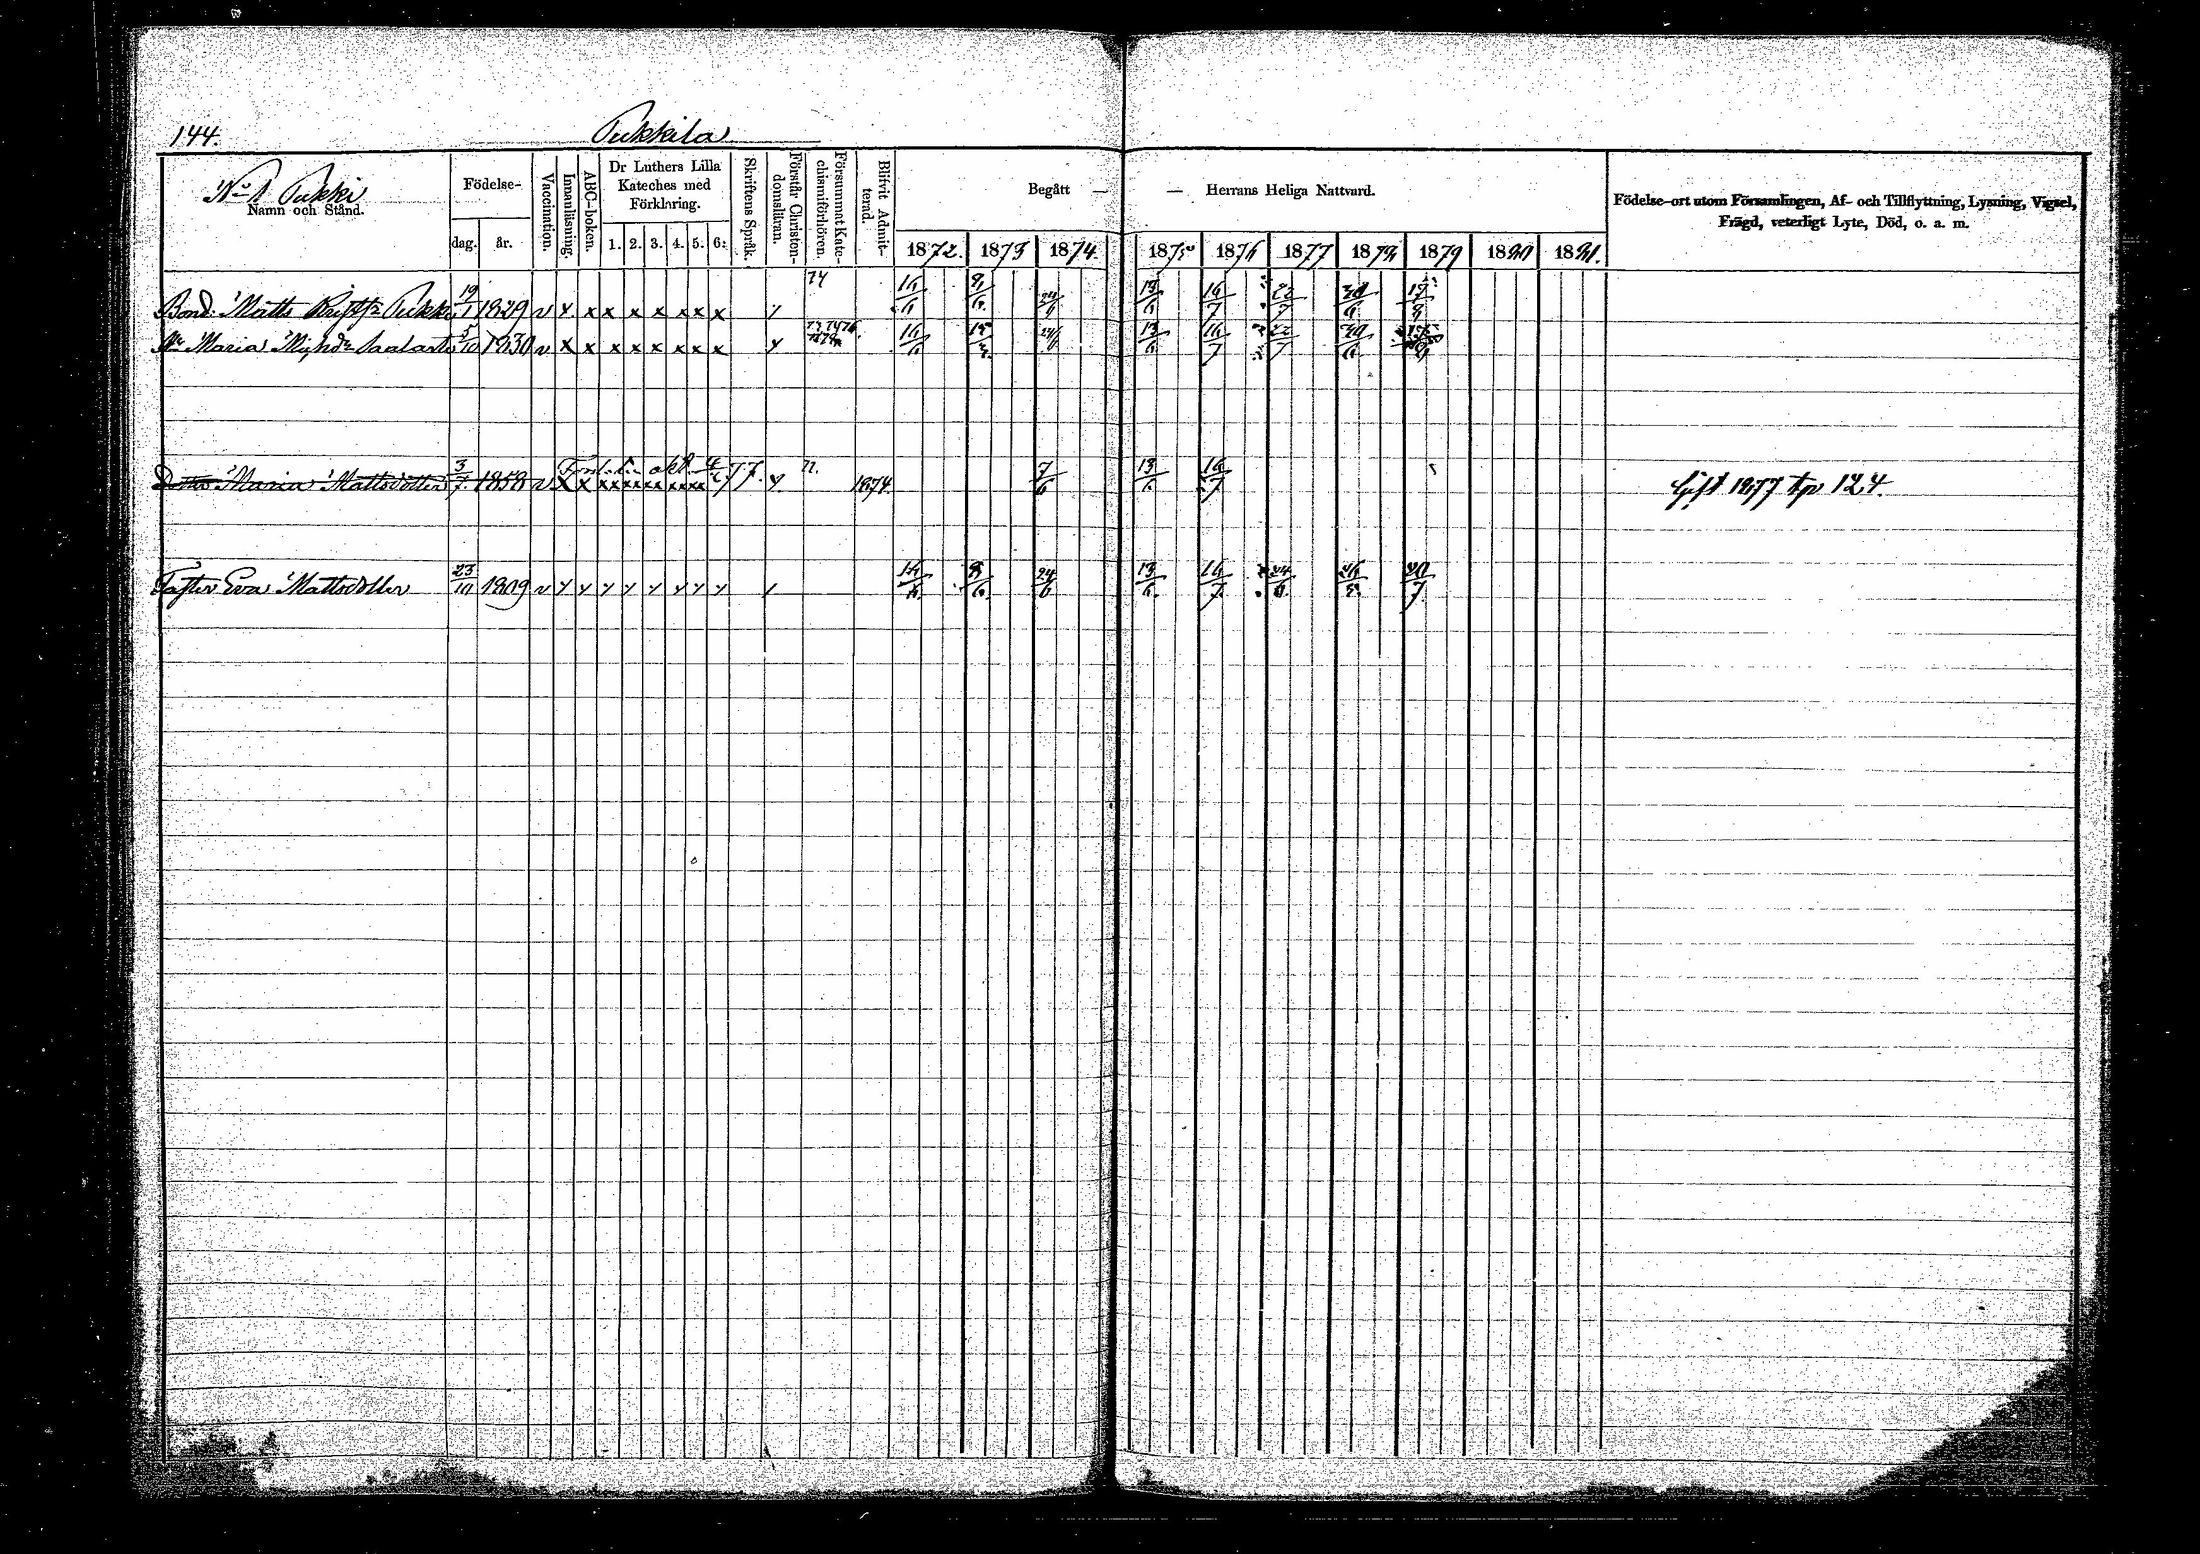 144.
Pukkila
No 1 Pukki
Namn och Stånd.
Födelse-
dag. år.
Vaccination.
Innanläsning.
ABC-boken.
Dr Luthers Lilla
Kateches med
Förklaring.
1. 2. 3. 4. 5. 6.
Skriftens Språk.
Förstår Christen-
domsläran.
Försummat Kate-
chismiförhören.
Blifvit Admit-
terad.
Begått — — Herrans Heliga Nattvard.
1872. 1873 1874. 1875 1876 1877 1878 1879 1880 1881.
Födelse-ort utom Församlingen, Af- och Tillflyttning, Lysning, Vigsel,
Frägd, veterligt Lyte, Död, o. a. m.
Bond. Matts Pukki 19/1 1829 v x x x x x x x x 74 16/6 8/6 24/6 13/6 16/7 22/7 17/9
Maria 5/10 1830 v x x x x x x x x 16/6 24/6 13/6 16/7 22/7
4/6 77. 72.
Dotter Maria Mattsdotter 3/7 1858 v x x x x x x x x 1874. 7/6 13/6 16/7 Gift 1877 124.
Faster Eva Mattsdotter 23/10 1809 v x x x x x x x x 16/6 8/6 24/6 13/6 16/7 20/7